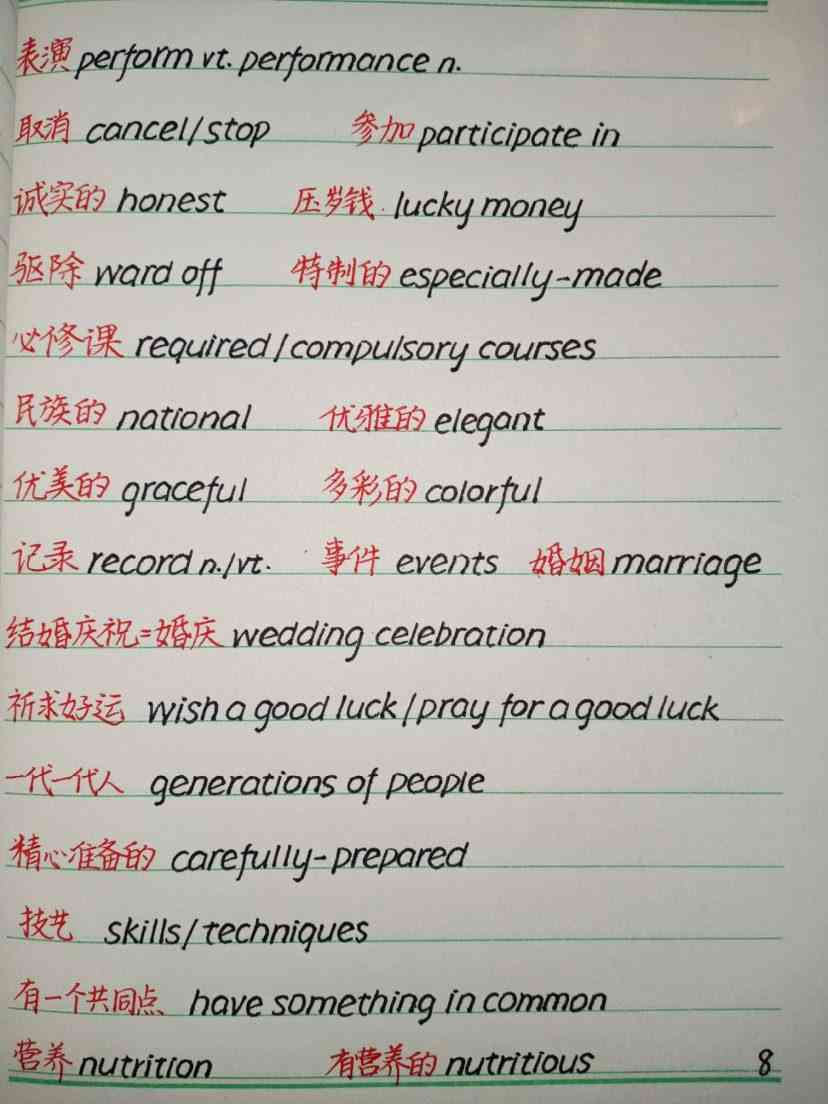 表演 perform vt. performance n.
取消 cancel/stop 参加 participate in
诚实的 honest 压岁钱 lucky money
驱除 ward off 特制的 especially-made
必修课 required/compulsory courses
民族的 national 优雅的 elegant
优美的 graceful 多彩的 colorful
记录 record n./vt. 事件 events 婚姻 marriage
结婚庆祝=婚庆 wedding celebration
祈求好运 wish a good luck/pray for a good luck
一代一代人 generations of people
精心准备的 carefully-prepared
技艺 skills/techniques
有一个共同点 have something in common
营养 nutrition 有营养的 nutritious 8